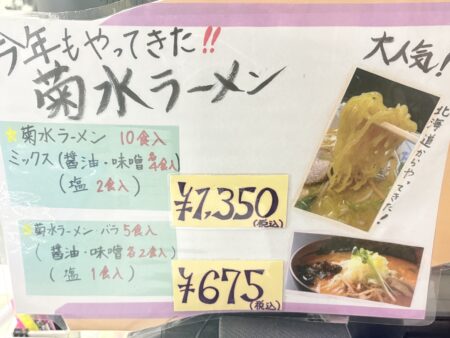 今年もやってきた!!
菊水ラーメン
大人気!
北海道からやってきた!
★菊水ラーメン 10食入
ミックス(醤油・味噌各4食入)
(塩 2食入)
¥1,350
(税込)
★菊水ラーメン・バラ 5食入
(醤油・味噌各2食入)
(塩 1食入)
¥675
(税込)